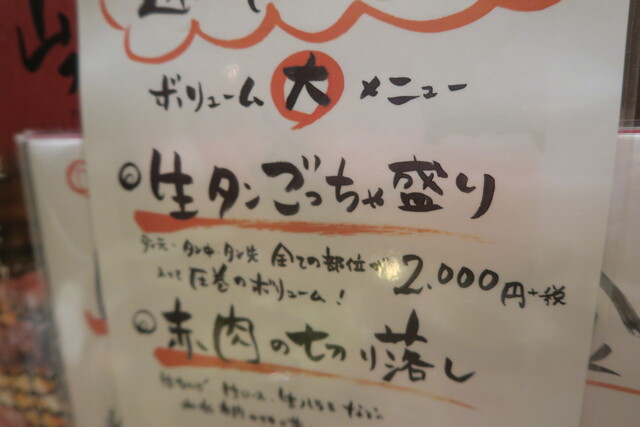 ボリューム大メニュー
生タンごっちゃ盛り
タン元・タン中・タン先 全ての部位が
入って圧巻のボリューム!
2.000円+税
赤肉の切り落し